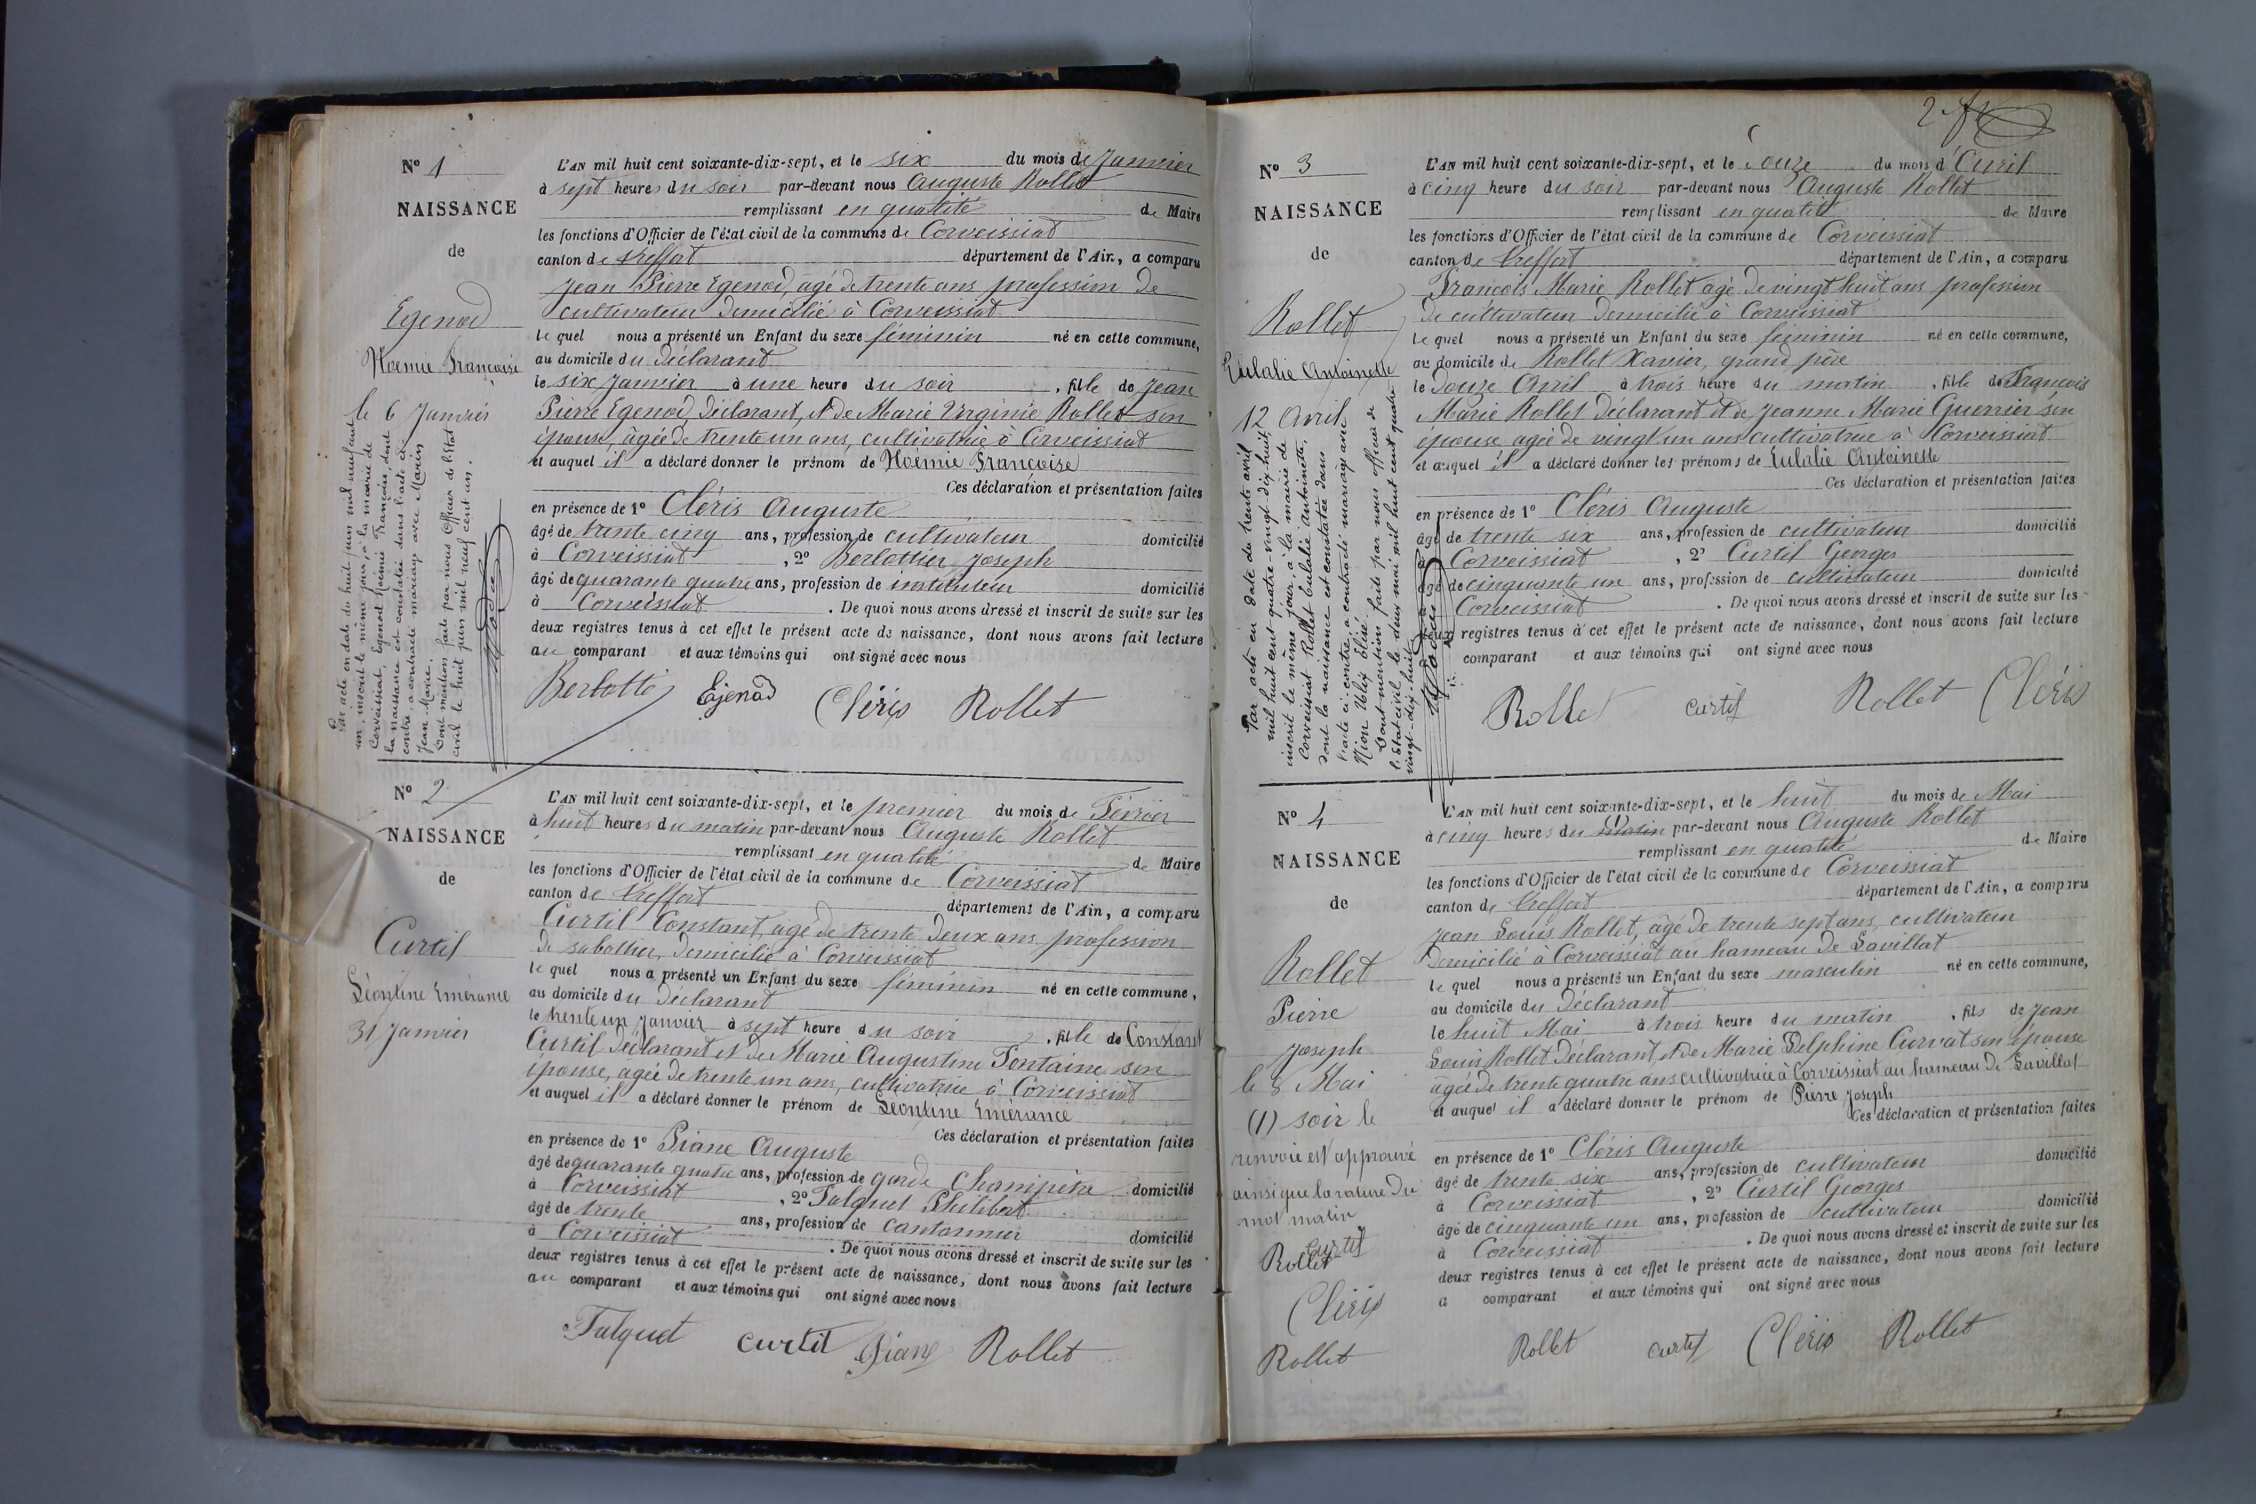 N° 1
NAISSANCE
de
Egenod
Noémie Françoise
le 6 Janvier
Par acte en date du huit juin mil neuf cent
un, inscrit le même jour, à la mairie de
Corveissiat, Egenod Noémie Françoise, dont
la naissance est constatée dans l'acte ci-
contre, a contracté mariage avec Marin
Jean Marie.
Dont mention faite par nous Officier de l'Etat
civil le huit juin mil neuf cent un.
L'AN mil huit cent soixante-dix-sept, et le six du mois de Janvier
à sept heures du soir par-devant nous Auguste Rollet
remplissant en qualité de Maire
les fonctions d'Officier de l'état civil de la commune de Corveissiat
canton de Treffort département de l'Ain, a comparu
Jean Pierre Egenod, agé de trente ans profession de
cultivateur domicilié à Corveissiat
le quel nous a présenté un Enfant du sexe féminin né en cette commune,
au domicile du déclarant
le six Janvier à une heure du soir, fille de Jean
Pierre Egenod, déclarant, et de Marie Virginie Rollet son
épouse, âgée de trente un ans, cultivatrice à Corveissiat
et auquel il a déclaré donner le prénom de Noémie Françoise
Ces déclaration et présentation faites
en présence de 1° Cléris Auguste
âgé de trente cinq ans, profession de cultivateur domicilié
à Corveissiat, 2° Berlottier Joseph
âgé de quarante quatre ans, profession de instituteur domicilié
à Corveissiat. De quoi nous avons dressé et inscrit de suite sur les
deux registres tenus à cet effet le présent acte de naissance, dont nous avons fait lecture
au comparant et aux témoins qui ont signé avec nous
Egenod Cléris Rollet
N° 2
NAISSANCE
de
Curtil
Léontine Emérance
31 Janvier
L'AN mil huit cent soixante-dix-sept, et le premier du mois de Février
à huit heures du matin par-devant nous Auguste Rollet
remplissant en qualité de Maire
les fonctions d'Officier de l'état civil de la commune de Corveissiat
canton de Treffort département de l'Ain, a comparu
Curtil Constant, agé de trente deux ans profession
de sabotier, domicilié à Corveissiat
le quel nous a présenté un Enfant du sexe féminin né en cette commune,
au domicile du déclarant
le trente un Janvier à sept heure du soir, fille de Constant
Curtil déclarant et de Marie Augustine Fontaine son
épouse, agée de trente un ans, cultivatrice à Corveissiat
et auquel il a déclaré donner le prénom de Léontine Emérance
Ces déclaration et présentation faites
en présence de 1° Piane Auguste
âgé de quarante quatre ans, profession de garde Champêtre domicilié
à Corveissiat, 2° Falquet Philibert
âgé de trente ans, profession de cantonnier domicilié
à Corveissiat. De quoi nous avons dressé et inscrit de suite sur les
deux registres tenus à cet effet le présent acte de naissance, dont nous avons fait lecture
au comparant et aux témoins qui ont signé avec nous
Falquet Curtil Piane Rollet
2
N° 3
NAISSANCE
de
Rollet
Eulalie Antoinette
12 Avril
Par acte en date du trente avril
mil huit cent quatre-vingt-dix-huit,
inscrit le même jour, à la mairie de
Corveissiat Rollet Eulalie Antoinette,
dont la naissance est constatée dans
l'acte ci-contre, a contracté mariage avec
Dont mention faite par nous officier de
l'Etat civil, le deux mai mil huit cent quatre
vingt-dix-huit.
L'AN mil huit cent soixante-dix-sept, et le douze du mois d'Avril
à cinq heure du soir par-devant nous Auguste Rollet
remplissant en qualité de Maire
les fonctions d'Officier de l'état civil de la commune de Corveissiat
canton de Treffort département de l'Ain, a comparu
François Marie Rollet agé de vingt huit ans profession
de cultivateur domicilié à Corveissiat
le quel nous a présenté un Enfant du sexe féminin né en cette commune,
au domicile de Rollet Xavier, grand père
le douze Avril à trois heure du matin, fille de François
Marie Rollet déclarant et de Jeanne Marie Guerrier son
épouse agée de vingt un ans cultivatrice à Corveissiat
et auquel il a déclaré donner les prénoms de Eulalie Antoinette
Ces déclaration et présentation faites
en présence de 1° Cléris Auguste
âgé de trente six ans, profession de cultivateur domicilié
à Corveissiat, 2° Curtil Georges
âgé de cinquante un ans, profession de cultivateur domicilié
à Corveissiat. De quoi nous avons dressé et inscrit de suite sur les
deux registres tenus à cet effet le présent acte de naissance, dont nous avons fait lecture
comparant et aux témoins qui ont signé avec nous
Rollet Curtil Rollet Cléris
N° 4
NAISSANCE
de
Rollet
Pierre
Joseph
le 8 Mai
(1) soir le
renvoie est approuvé
ainsi que la rature du
mot matin
Curtil
Rollet
Cléris
Rollet
L'AN mil huit cent soixante-dix-sept, et le huit du mois de Mai
à cinq heures du matin (1) par-devant nous Auguste Rollet
remplissant en qualité de Maire
les fonctions d'Officier de l'état civil de la commune de Corveissiat
canton de Treffort département de l'Ain, a comparu
Jean Louis Rollet, âgé de trente sept ans, cultivateur
domicilié à Corveissiat au hameau de Lavillat
le quel nous a présenté un Enfant du sexe masculin né en cette commune,
au domicile du déclarant
le huit Mai à trois heure du matin, fils de Jean
Louis Rollet déclarant, et de Marie Delphine Curvat son épouse
agée de trente quatre ans cultivatrice à Corveissiat au hameau de Lavillat
et auquel il a déclaré donner le prénom de Pierre Joseph
Ces déclaration et présentation faites
en présence de 1° Cléris Auguste
âgé de trente six ans, profession de cultivateur domicilié
à Corveissiat, 2° Curtil Georges
âgé de cinquante un ans, profession de cultivateur domicilié
à Corveissiat. De quoi nous avons dressé et inscrit de suite sur les
deux registres tenus à cet effet le présent acte de naissance, dont nous avons fait lecture
a comparant et aux témoins qui ont signé avec nous
Rollet Curtil Cléris Rollet